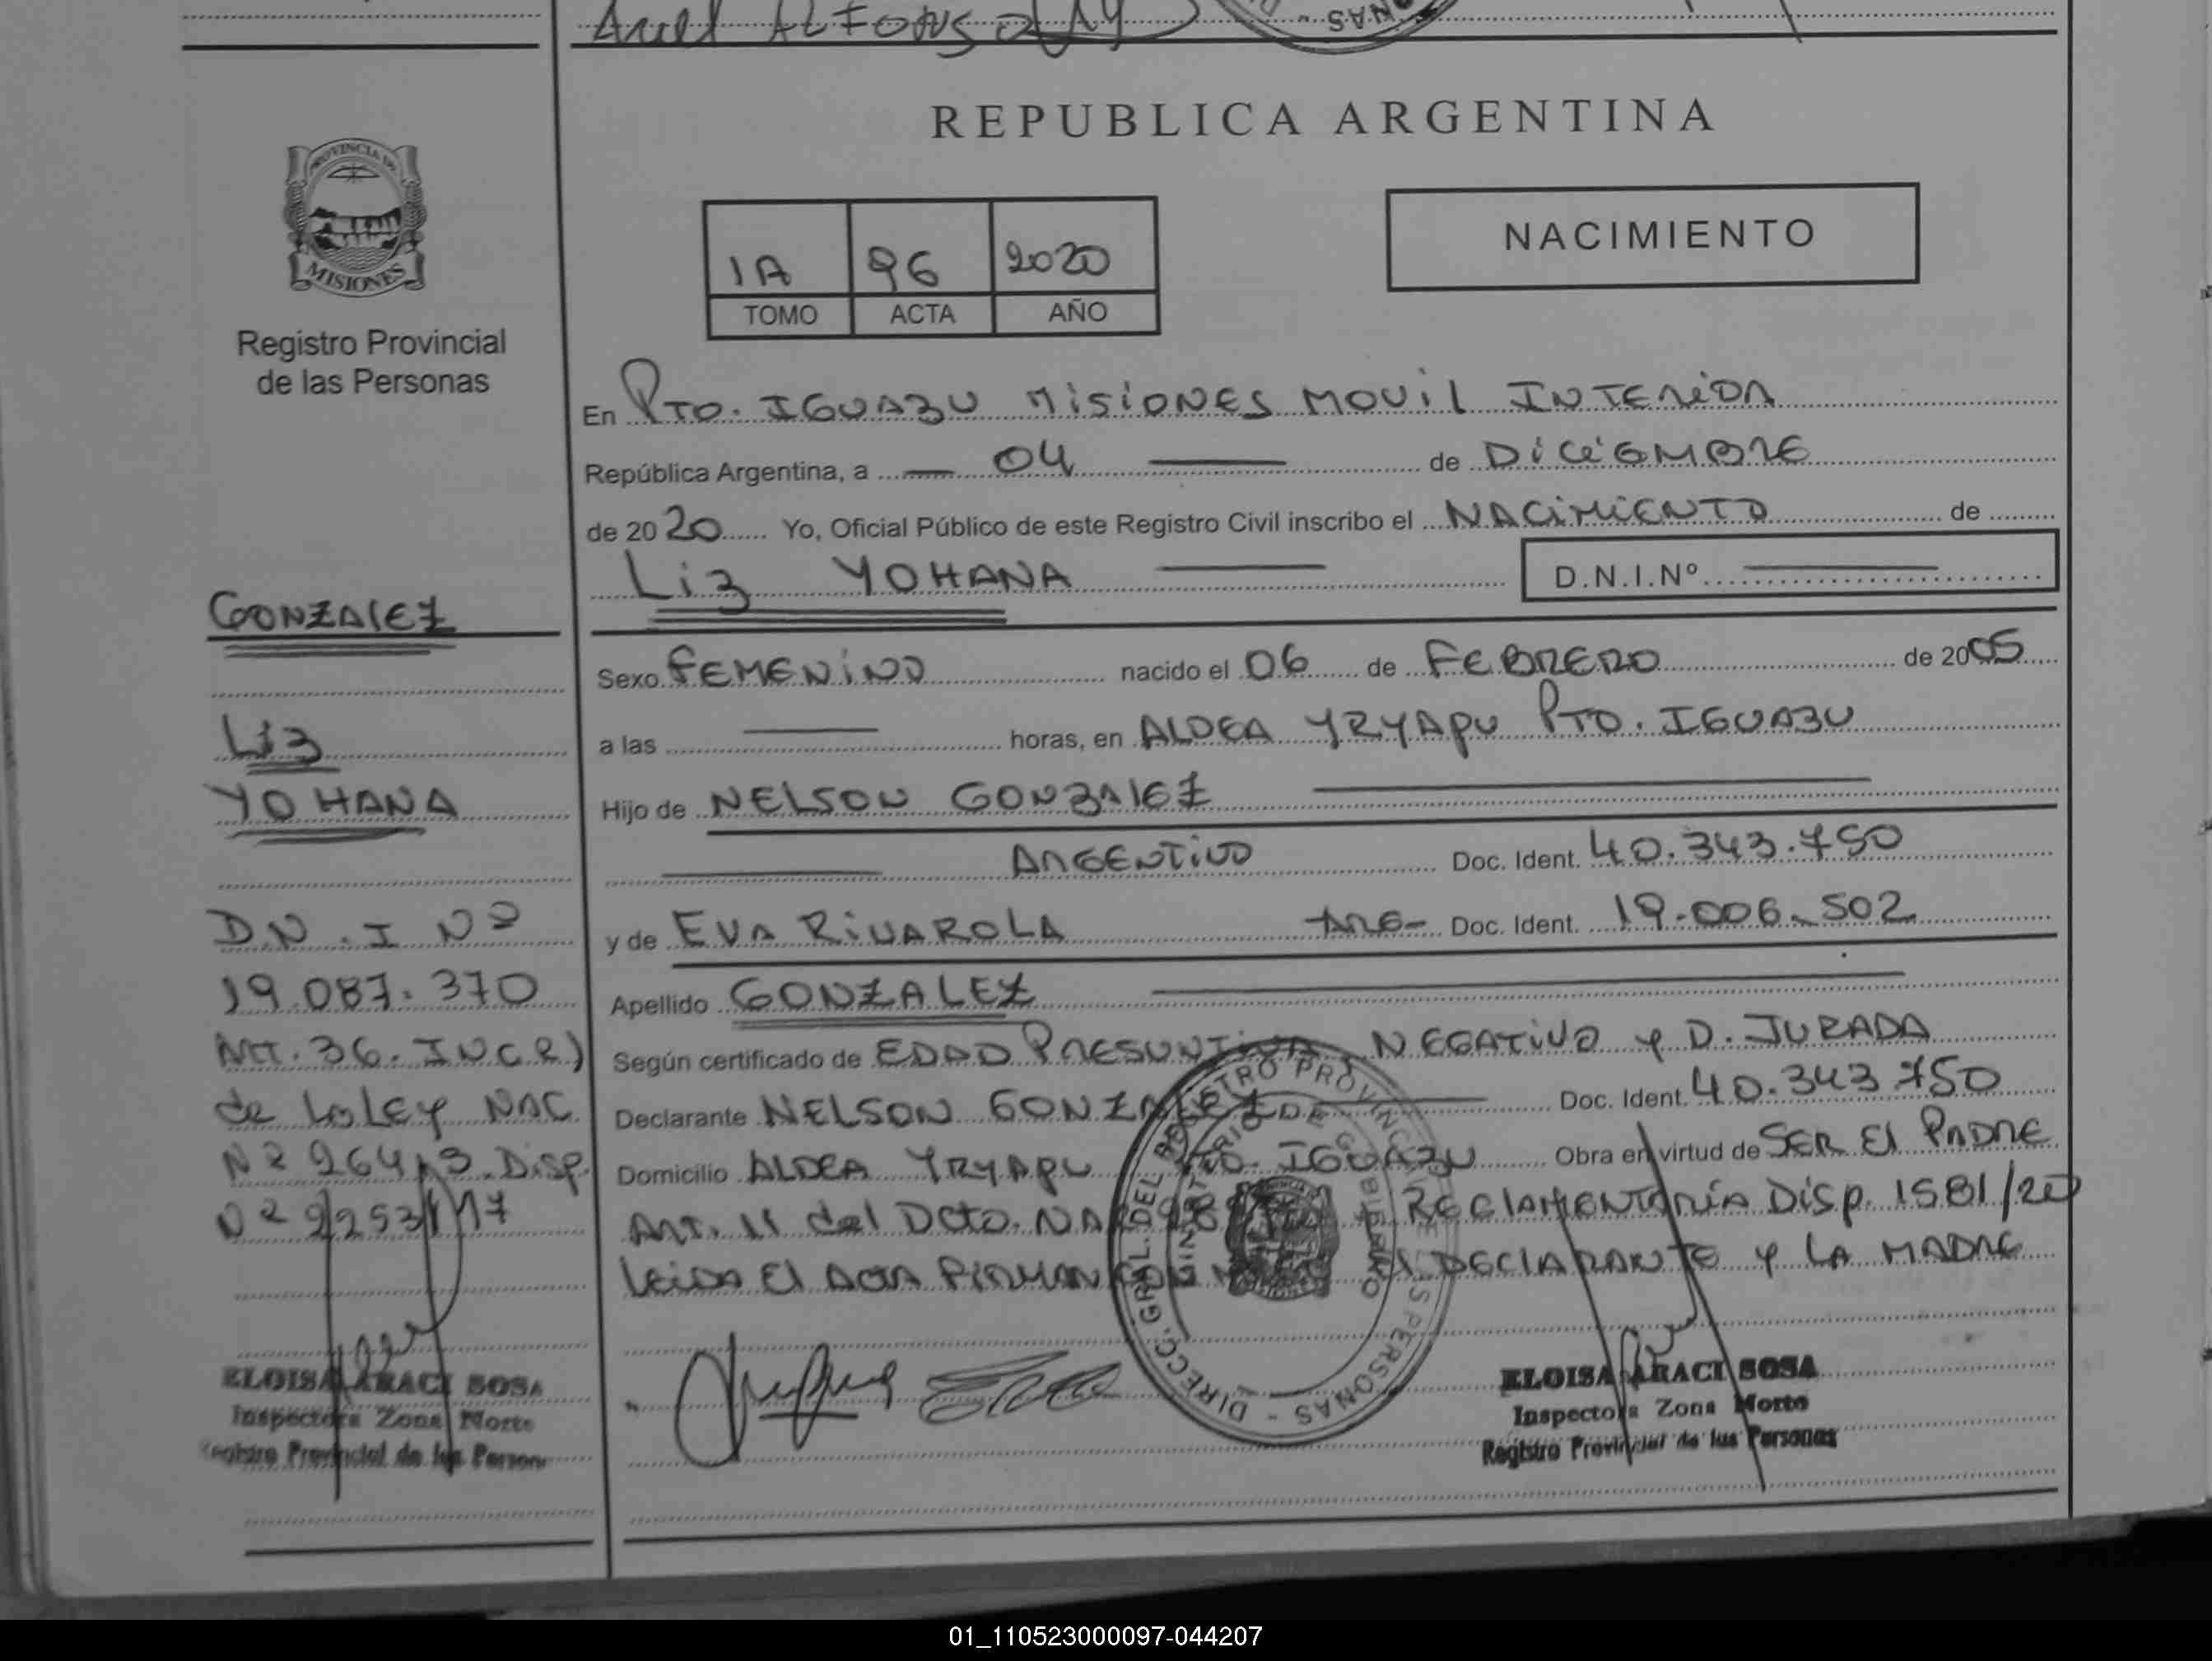 Ariel Alfonso
REPUBLICA ARGENTINA
PROVINCIA DE
MISIONES
Registro Provincial
de las Personas
NACIMIENTO
1A 96 2020
TOMO ACTA AÑO
En Pto. IGUAZU MISIONES MOVIL INTERIOR
República Argentina, a — 04 — de DICIEMBRE
de 2020 Yo, Oficial Público de este Registro Civil inscribo el NACIMIENTO de
Liz YOHANA — D.N.I.Nº —
GONZALEZ
Liz
YOHANA
D.N.I Nº
19.087.370
Art. 36. INC.
de La LEY NAC.
Nº 26413. Disp.
Nº 2253/17
ELOISA ARACI SOSA
Inspectora Zona Norte
Registro Provincial de las Person
Sexo FEMENINO nacido el 06 de FEBRERO de 2005
a las — horas, en ALDEA YRYAPU Pto. IGUAZU
Hijo de NELSON GONZALEZ —
— ARGENTINO Doc. Ident. 40.343.750
y de EVA RIVAROLA ARG- Doc. Ident. 19.006.502
Apellido GONZALEZ —
Según certificado de EDAD PRESUNTIVA NEGATIVO y D. JURADA
Declarante NELSON GONZALEZ — Doc. Ident. 40.343.750
Domicilio ALDEA YRYAPU Pto. IGUAZU Obra en virtud de SER El PADRE
Art. 11 del Dcto. REGLAMENTARIA Disp. 1581/20
Leida El Acta FIRMAN El DECLARANTE y LA MADRE
DIRECC. GRAL. DEL REGISTRO PROVINCIAL DE LAS PERSONAS
MINISTERIO DE GOBIERNO
ELOISA ARACI SOSA
Inspectora Zona Norte
Registro Provincial de las Personas
01_110523000097-044207